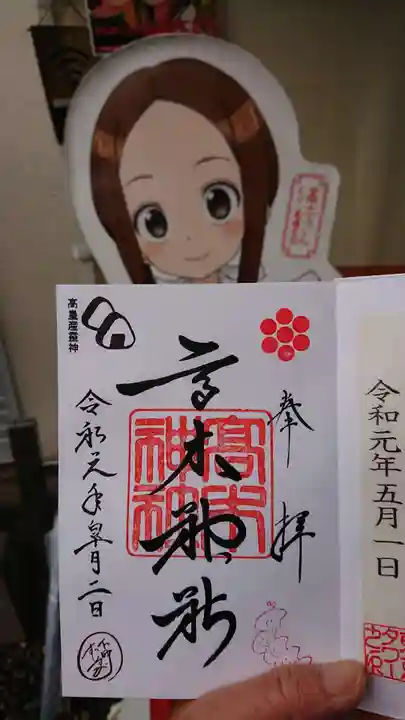 奉拝
高木神社
高木神社
高皇産靈神
令和元年皐月二日
令和元年五月一日